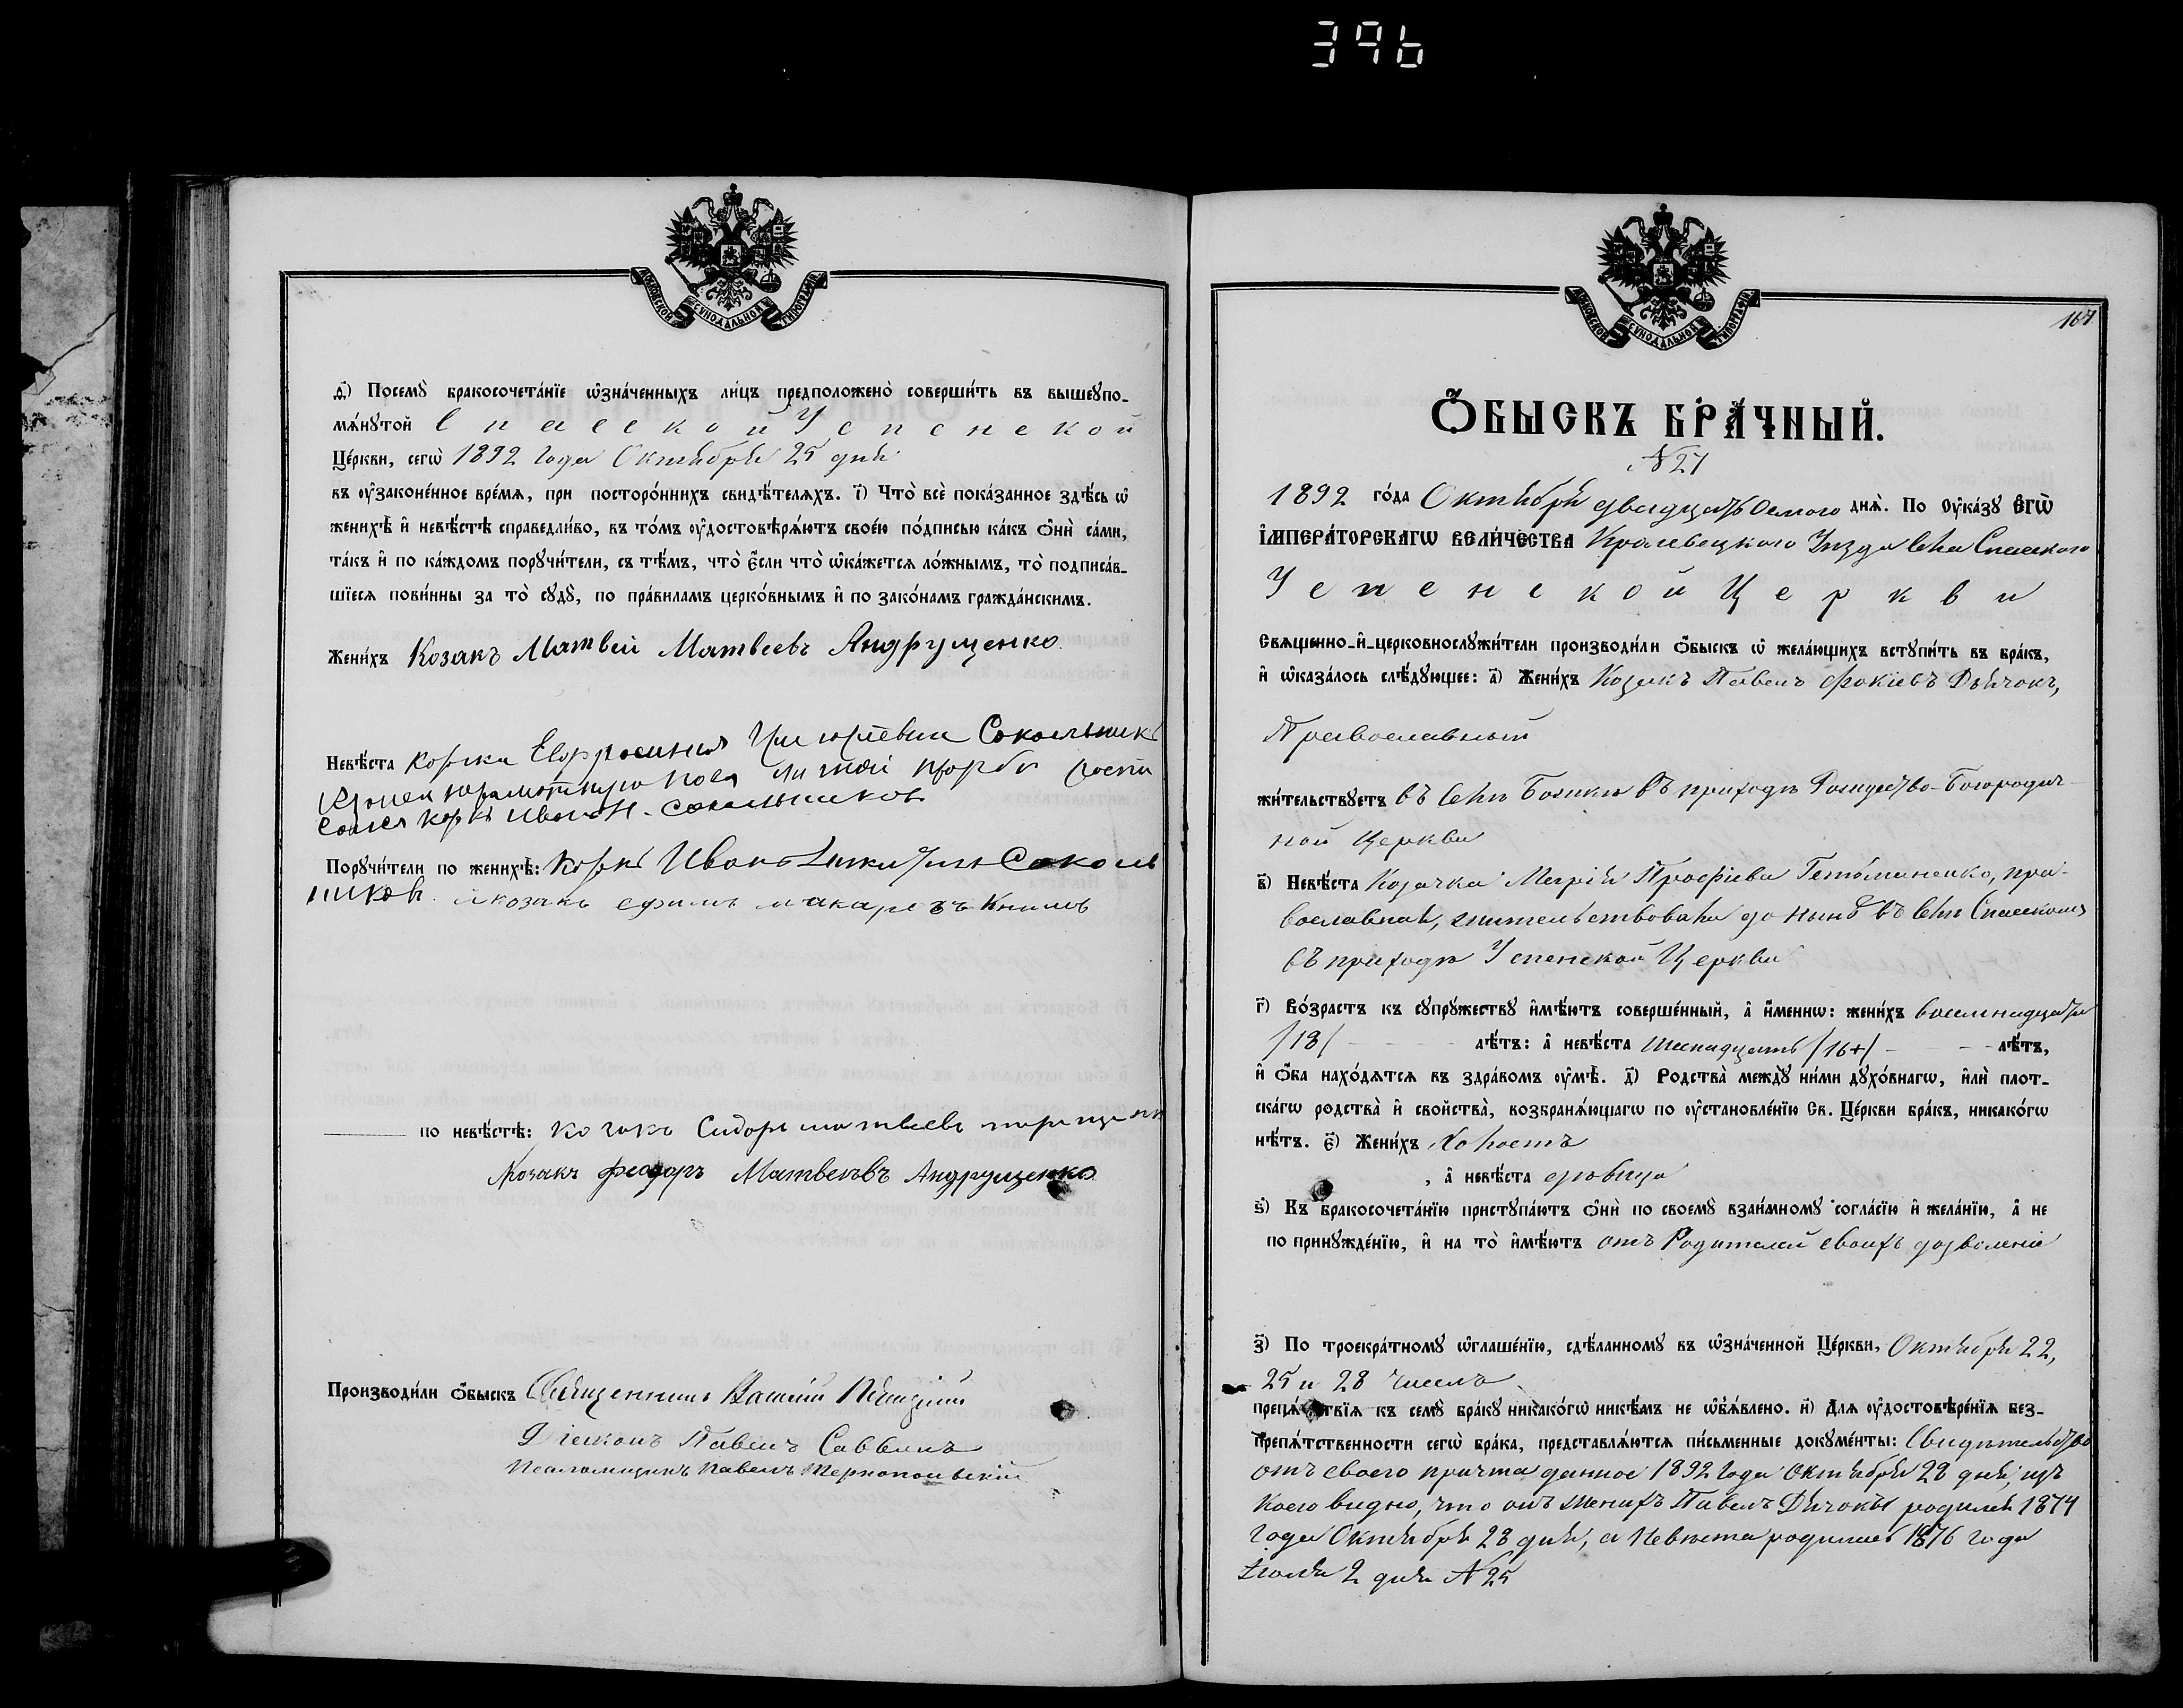 396
МОСКОВСКОЙ СѴНОДАЛЬНОЙ ТИПОГРАФІИ
д҃і) Посемꙋ̀ бракосочета́нїе ѡ҆зна́ченныхъ ли́цъ предположено̀ соверши́ть въ вышеꙋпо-
мѧ́нꙋтой Спасской Успенской
Це́ркви, сегѡ̀ 1892 года Октября 25 дня
въ ᲂу҆законе́нное вре́мѧ, при посторо́ннихъ свидѣ́телѧхъ. і҃) Что̀ всѐ пока́занное здѣ́сь ѡ҆
женихѣ̀ и҆ невѣ́стѣ справедли́во, въ то́мъ ᲂу҆достовѣрѧ́ютъ свое́ю по́дписью ка́къ ѻ҆нѝ са́ми,
та́къ и҆ по ка́ждомъ порꙋчи́тели, съ тѣ́мъ, что̀ є҆́сли что̀ ѡ҆ка́жетсѧ ло́жнымъ, то̀ подписа́в-
шїесѧ пови́нны за то̀ сꙋдꙋ̀, по пра́виламъ церко́внымъ и҆ по зако́намъ гражда́нскимъ.
Жени́хъ Козакъ Матвей Матвеевъ Андрущенко
Невѣ́ста Евфросиния Сокольник
Порꙋчи́тели по женихѣ̀: Иванъ Соколь
никовъ. и козакъ ефимъ макаровъ
по невѣ́стѣ: козакъ Сидоръ матвеевъ
Козакъ феодоръ Матвеевъ Андрущенко
Производи́ли ѻ҆́быскъ Священникъ
Діаконъ Павелъ Саввинъ
Псаломщикъ Павелъ Тернопольскій
МОСКОВСКОЙ СѴНОДАЛЬНОЙ ТИПОГРАФІИ
167
Ѻ҆́БЫСКЪ БРА́ЧНЫЙ.
№ 27
1892 го́да Октября двадцать осмого днѧ̀. По ᲂу҆ка́зꙋ Є҆гѡ̀
І҆мпера́торскагѡ Вели́чества Кролевецкого Уѣзда села Спасского
Успенской Церкви
Свѧщенно-и҆-церковнослꙋжи́тели производи́ли ѻ҆́быскъ ѡ҆ жела́ющихъ встꙋпи́ть въ бра́къ,
и҆ ѡ҆каза́лось слѣ́дꙋющее: а҃) Жени́хъ Козакъ Павелъ Фокіевъ Дьячокъ,
Православный
жи́тельствꙋетъ въ селѣ въ приходѣ Рождество-Богородич-
ной Церкви
в҃) Невѣ́ста Козачка Марія Гетьманенко, пра-
вославная, жительствовала до нынѣ въ селѣ Спасскомъ
въ приходѣ Успенской Церкви
г҃) Во́зрастъ къ сꙋпрꙋ́жествꙋ и҆мѣ́ютъ соверше́нный, а҆ и҆́меннѡ: жени́хъ восемнадцать
/18/ лѣ́тъ: а҆ невѣ́ста Шеснадцать /16+/ лѣ́тъ,
и҆ ѻ҆́ба нахо́дѧтсѧ въ здра́вомъ ᲂу҆мѣ̀. д҃) Родства̀ междꙋ̀ ни́ми дꙋхо́внагѡ, и҆лѝ плот-
ска́гѡ родства̀ и҆ свойства̀, возбранѧ́ющагѡ по ᲂу҆становле́нїю Св. Це́ркви бра́къ, никако́гѡ
нѣ́тъ. є҃) Жени́хъ Холостъ
, а҆ невѣ́ста дѣвица
ѕ҃) Къ бракосочета́нїю пристꙋпа́ютъ ѻ҆нѝ по своемꙋ̀ взаи́мномꙋ согла́сїю и҆ жела́нїю, а҆ не
по принꙋжде́нїю, и҆ на то̀ и҆мѣ́ютъ отъ Родителей своихъ дозволеніе
з҃) По троекра́тномꙋ ѡ҆глаше́нїю, сдѣ́ланномꙋ въ ѡ҆зна́ченной Це́ркви, Октября 22,
25 и 28 чиселъ
препѧ́тствїѧ къ семꙋ̀ бра́кꙋ никако́гѡ никѣ́мъ не ѡ҆б̾ѧ́влено. и҃) Длѧ ᲂу҆достовѣре́нїѧ без-
препѧ́тственности сегѡ̀ бра́ка, представлѧ́ютсѧ пи́сьменные докꙋме́нты: Свидѣтельство
отъ своего причта данное 1892 года Октября 28 дня, изъ
коего видно, что онъ женихъ Павелъ Дьячокъ родился 1874
года Октября 28 дня, а Невѣста родилась 1876 года
Іюля 2 дня № 25